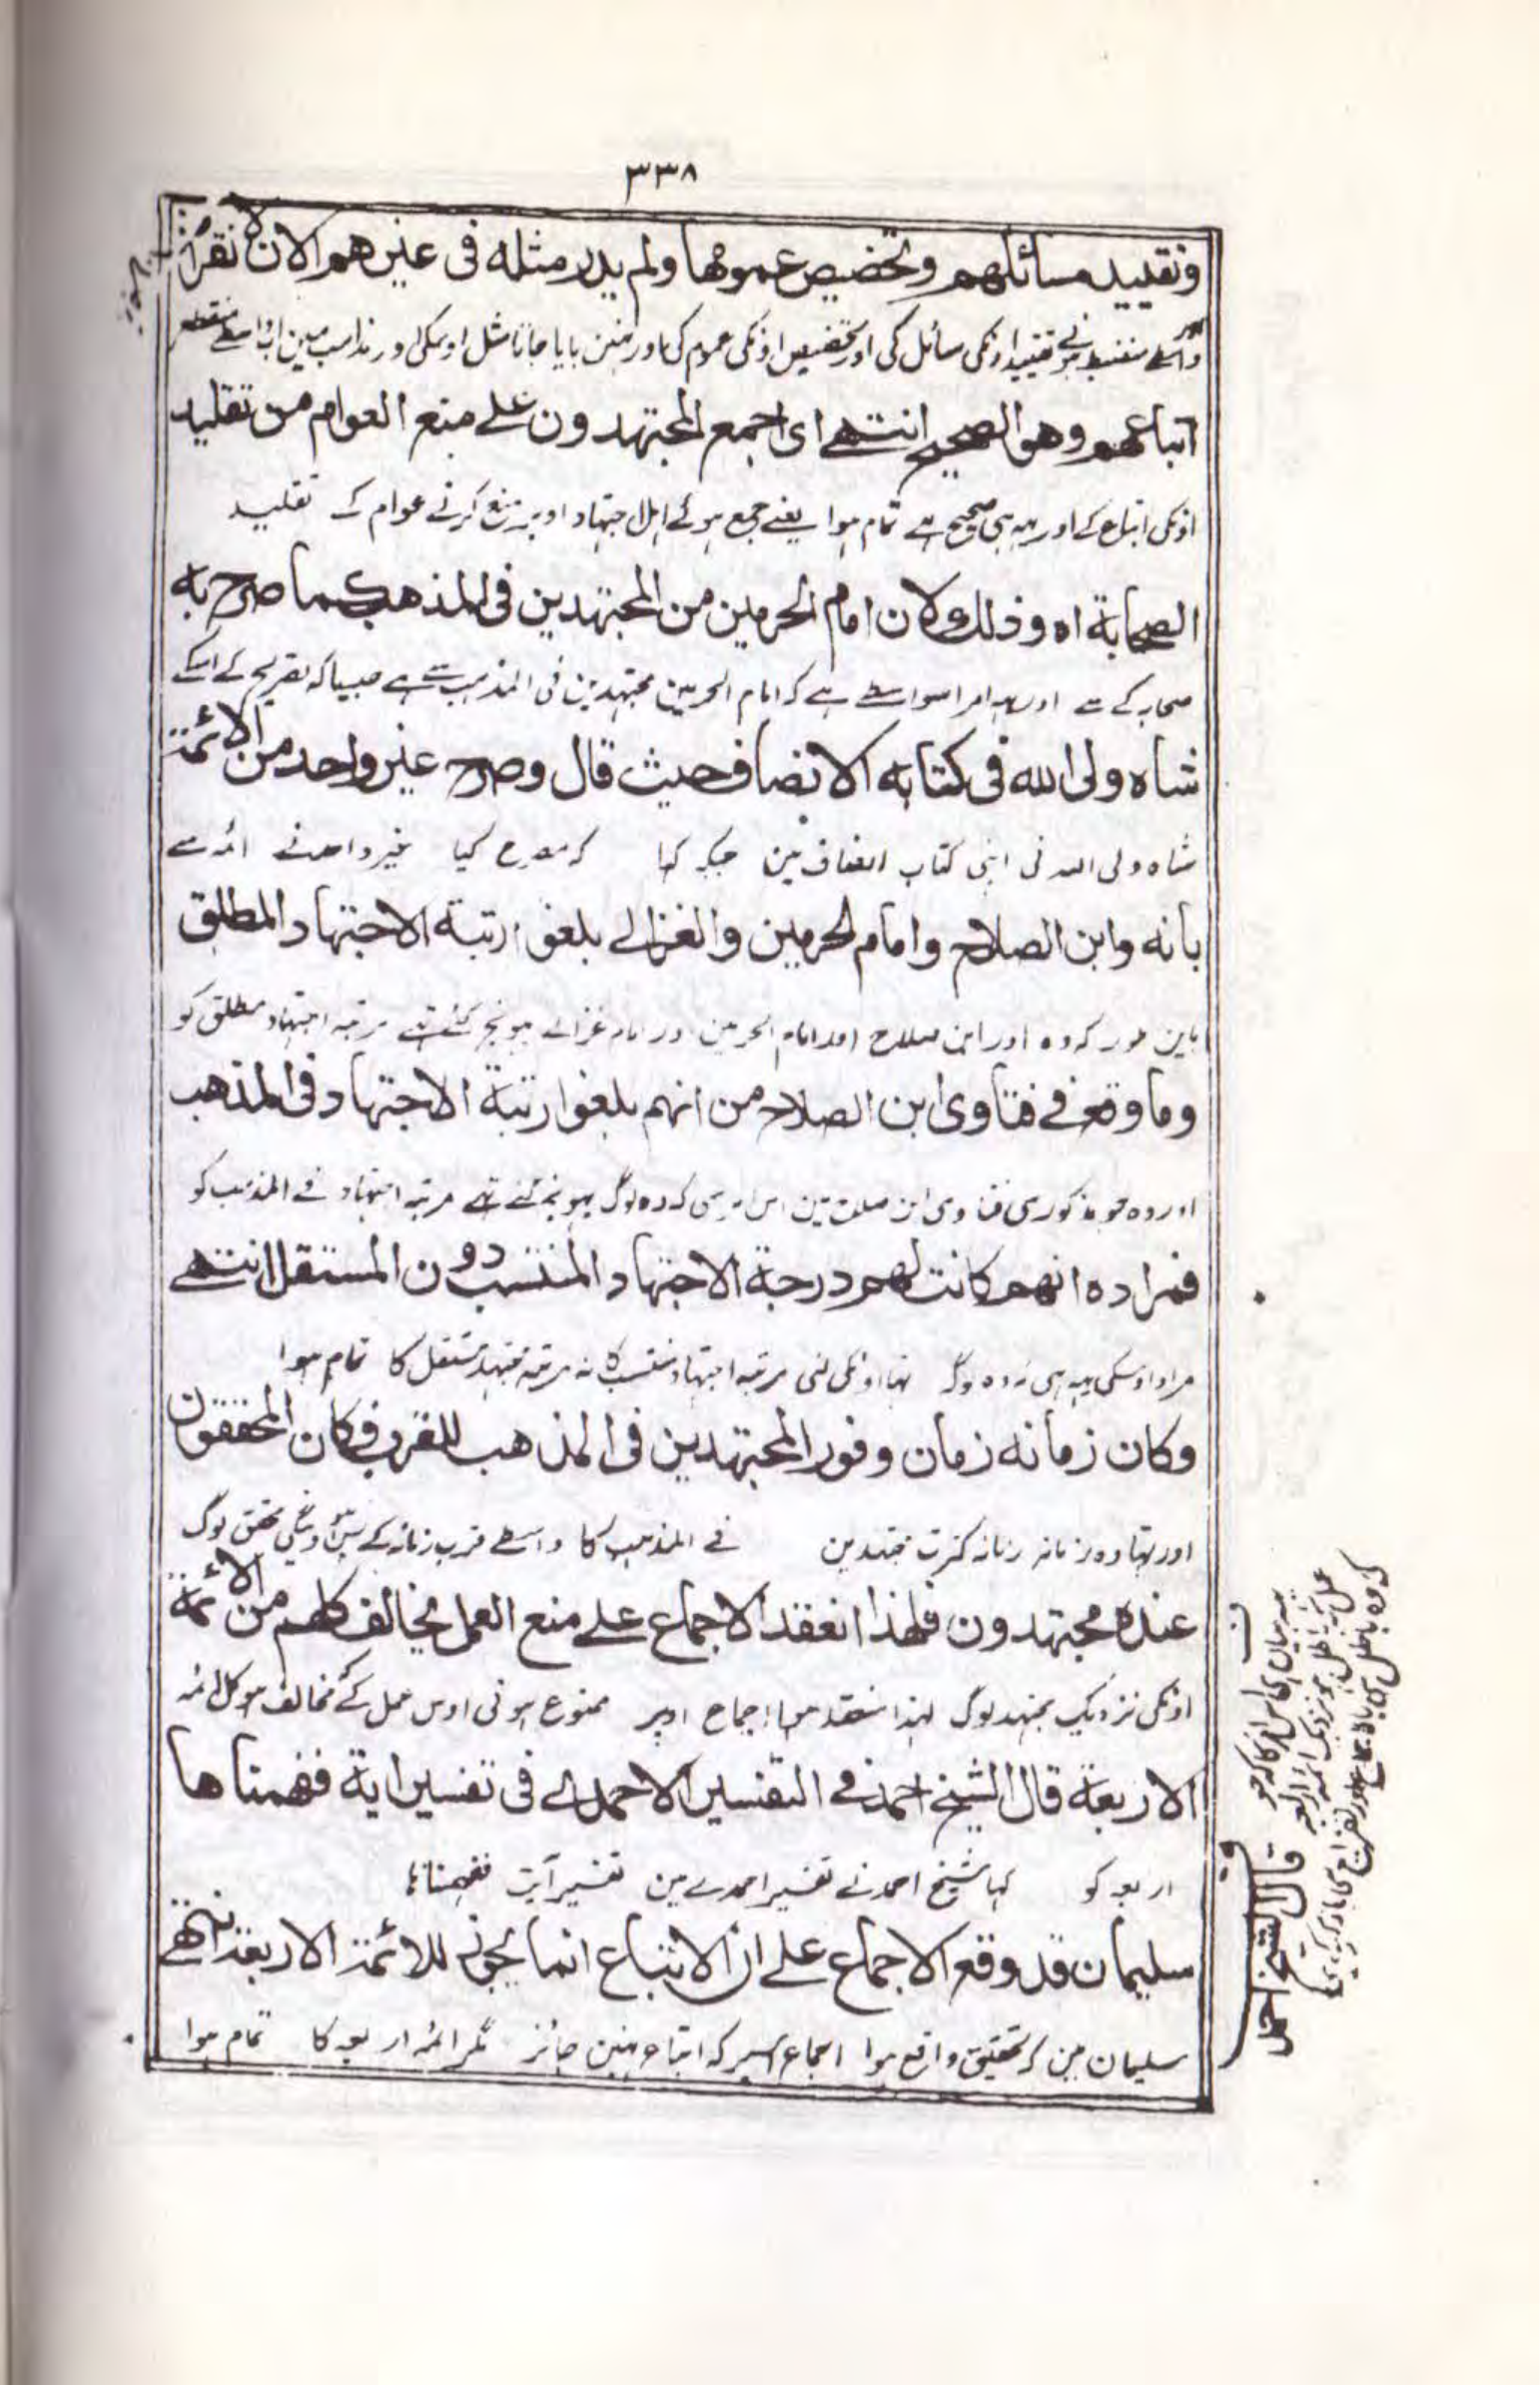 ٣٣٨
وتقييد مسائلهم وتخصيص عمومها ولم يدر مثله فى غيرهم الان لانقراض
واسطے منضبط ہونے تقیید اونکی مسائل کی اور تخصیص اونکی عموم کی اور نہین پایا جاتا مثل اوسکی اور مذاہب مین اب واسطے منقطع
اتباعهم وهو الصحيح انتهے اى اجمع المجتهدون علے منع العوام من تقليد
اونکی اتباع کے اور یہ ہی صحیح ہے تمام ہوا یعنے جمع ہوئے اہل اجتہاد اوپر منع کرنے عوام کے تقلید
الصحابة اه وذلك لان امام الحرمين من المجتهدين فى المذهب كما صرح به
صحابہ کے سے اور یہ امر اسواسطے ہے کہ امام الحرمین مجتہدین فی المذہب سے ہے جیسا کہ تصریح کے اسکے
شاه ولى الله فى كتابه الانصاف حيث قال وصرح غير واحد من الائمة
شاہ ولی اللہ نی اپنی کتاب انصاف مین جبکہ کہا کہ مصرح کیا غیر واحد نے ائمہ سے
بأنه وابن الصلاح وامام الحرمين والغزالے بلغوا رتبة الاجتهاد المطلق
باین طور کہ وہ اور ابن صلاح اور امام الحرمین اور امام غزالے پہونچ گئے تہے مرتبہ اجتہاد مطلق کو
وما وقع فے فتاوى ابن الصلاح من انهم بلغوا رتبة الاجتهاد فى المذهب
اور وہ جو مذکور ہی فتاوی ابن صلاح مین اس امر سی کہ وہ لوگ پہونچ گئے تہے مرتبہ اجتہاد فے المذہب کو
فمراده انهم كانت لهم درجة الاجتهاد المنتسب دون المستقل انتهے
مراد اوسکی یہ ہی کہ وہ لوگ تہا اونکی لئی مرتبہ اجتہاد منتسب کا نہ مرتبہ مجتہد مستقل کا تمام ہوا
وكان زمانه زمان وفور المجتهدين فى المذهب للقرب فكان المحققون
اور تہا وہ زمانہ زمانہ کثرت مجتہدین فے المذہب کا واسطے قرب زمانہ کے محقق لوگ
عنده مجتهدون فلهذا انعقد الاجماع علے منع العمل بخالف كلهم من الائمة
اونکی نزدیک مجتہد لوگ لہذا منعقد ہوا اجماع اوپر ممنوع ہونی اوس عمل کے مخالف ہو کل ائمہ
الاربعة قال الشيخ احمد فے التفسير الاحمدے فى تفسير اية ففهمناها
اربعہ کو کہا شیخ احمد نے تفسیر احمدے مین تفسیر آیت ففہمناہا
سليمان قد وقع الاجماع علے ان الاتباع انما يجوز للائمة الاربعة انتهے
سلیمان مین کہ تحقیق واقع ہوا اجماع اسپر کہ اتباع نہین جائز مگر ائمہ اربعہ کا تمام ہوا
قال الشيخ احمد